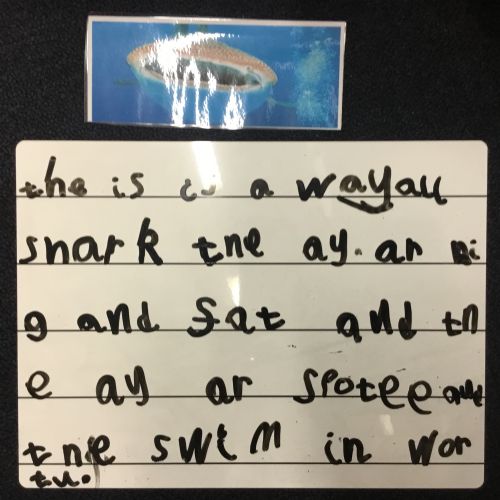 the is is a wayall
shark the ay. ar Bi
g and fat and th
e ay ar spotee and
the swim in wor
tu.